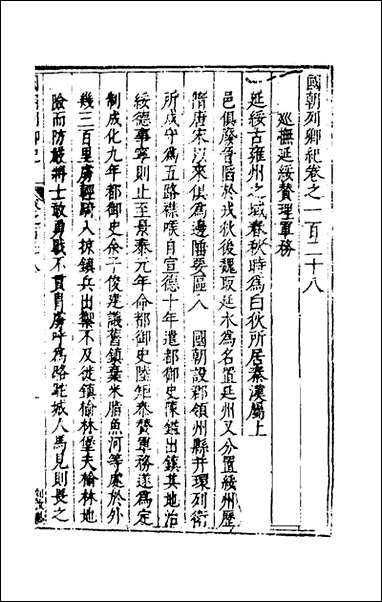 國朝列卿紀卷之一百二十八
巡撫延綏贊理軍務
延綏古雍州之域春秋時為白狄所居秦漢屬上
邑俱廢晉陷於戎狄後魏取延水為名置延州又分置綏州歷
隋唐宋以來俱為邊陲要區入國朝設郡領州縣并環列衛
所戍守為五路襟喉自宣德十年遣都御史陳鎰出鎮其地治
綏德事寧則止至景泰元年命都御史陸矩泰贊軍務遂為定
制成化九年都御史余子俊建議舊鎮棄米脂魚河等處於外
幾三百里虜輕騎入掠鎮兵出禦不及徙鎮榆林堡夫榆林地
險而防嚴將士敢勇戰不貫胄虜呼為駱駝城人馬見則畏之